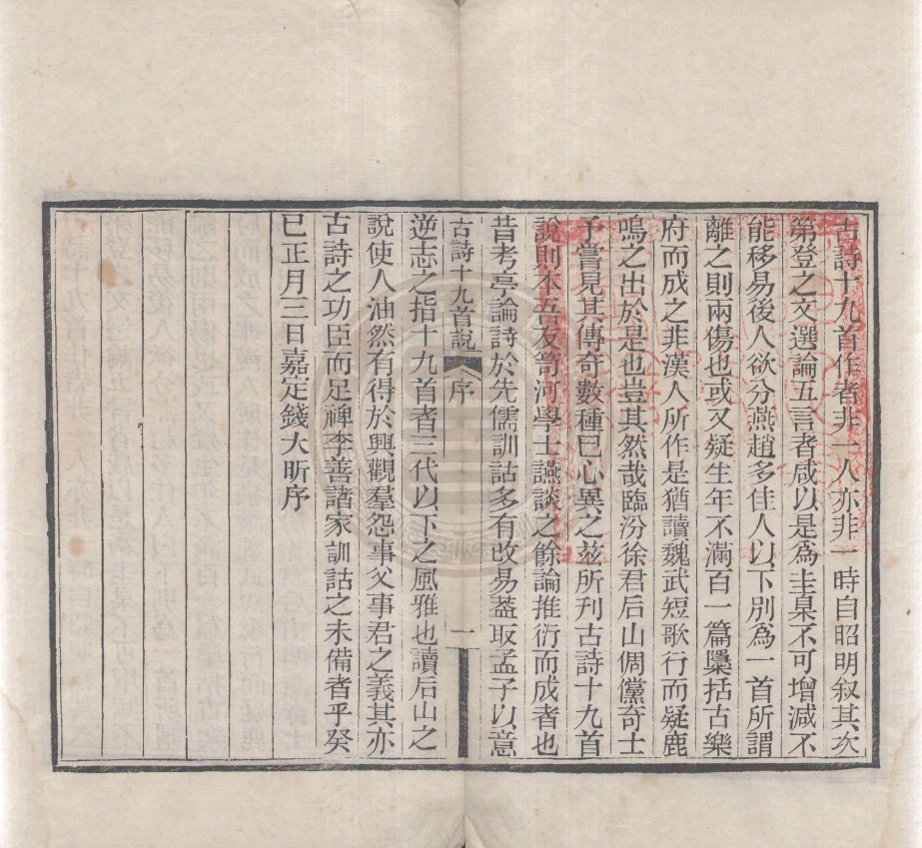 古詩十九首作者非一人亦非一時自昭明叙其次
第登之文選論五言者咸以是爲圭臬不可增減不
能移易後人欲分燕趙多佳人以下别爲一首所謂
離之則兩傷也或又疑生年不滿百一篇檃括古樂
府而成之非漢人所作是猶讀魏武短歌行而疑鹿
鳴之出於是也豈其然哉臨汾徐君后山倜儻奇士
予嘗見其傳奇數種已心異之兹所刊古詩十九首
說則本吾友笥河學士讌談之餘論推衍而成者也
昔考亭論詩於先儒訓詁多有改易葢取孟子以意
古詩十九首說 序 一
逆志之指十九首者三代以下之風雅也讀后山之
說使人油然有得於興觀羣怨事父事君之義其亦
古詩之功臣而足裨李善諸家訓詁之未備者乎癸
巳正月三日嘉定錢大昕序